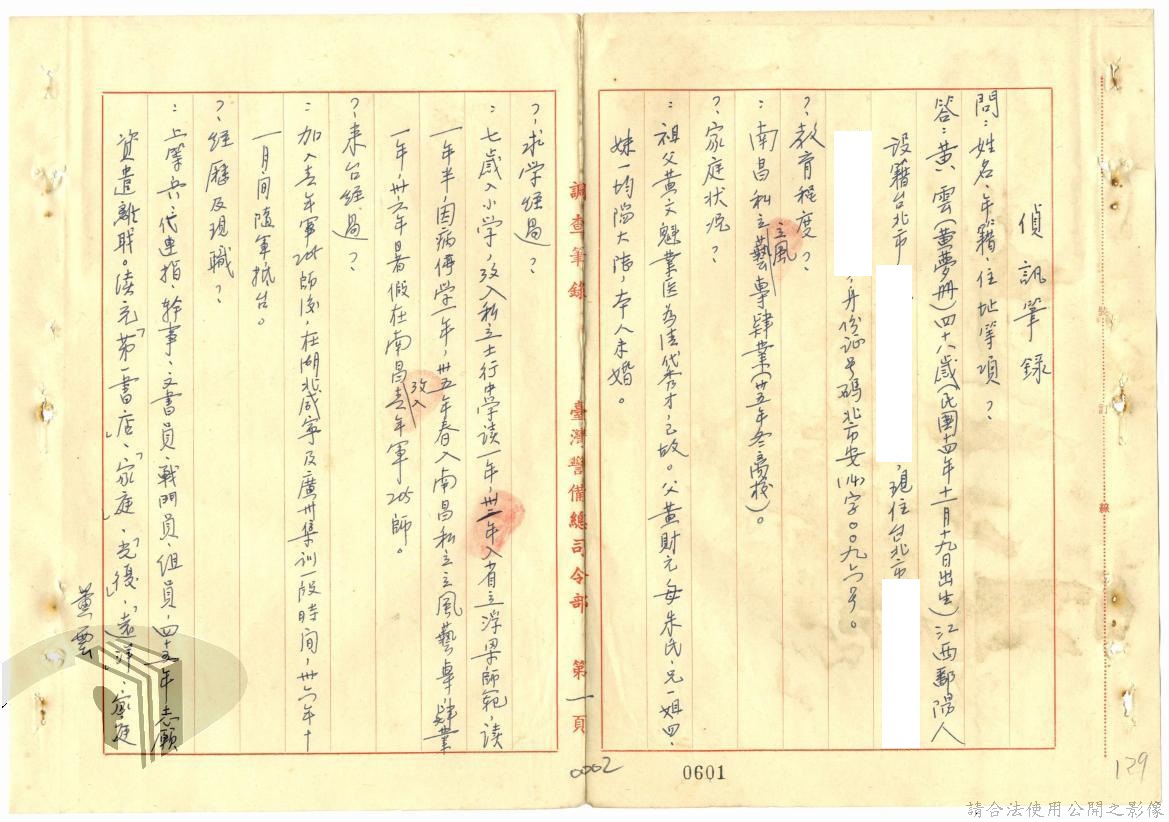 偵訊筆錄
問：姓名、年籍、住址等項？
答：黃雲（黃夢册）四十八歲（民國十四年十一月十九日出生）江西鄱陽人
設籍台北市　　　　，現住台北市
　　　，身份証号碼北市安（　）字〇〇九六号。
？教育程度？
：南昌私立立風藝專肄業（卅五年冬离校）。
？家庭狀况？
：祖父黃文魁業医為清代秀才，已故。父黃財元母朱氏，兄一姐四、
妹一均陷大陸，本人未婚。
調查筆錄　臺灣警備總司令部　第一頁
？求学經過？
：七歲入小学，攷入私立士行中学读一年，卅三年入省立浮梁師範，读
一年半，因病停学一年，卅五年春入南昌私立立風藝專，肄業
一年，卅六年暑假在南昌攷入青年軍205師。
？來台經過？
：加入青年軍205師後，在湖北咸寧及廣州集訓一段時間，卅六年十
一月间随軍抵台。
？經歷及現職？
：上等兵、代連指、幹事、文書員、戰鬥員、組員，四十五年志願
資遣離职。读完「第一書店」、「家庭」、「光復」、「遠洋」、家庭
黃雲
0002
0601
129
裝
訂
線
請合法使用公開之影像